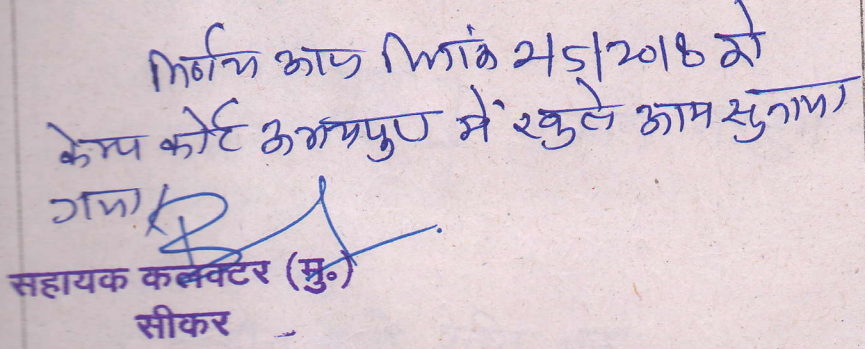 निर्णय आज दिनांक 2/5/2018 को
केम्प कोर्ट अभयपुरा में खुले आम सुनाया
गया।
सहायक कलक्टर (मु.)
सीकर